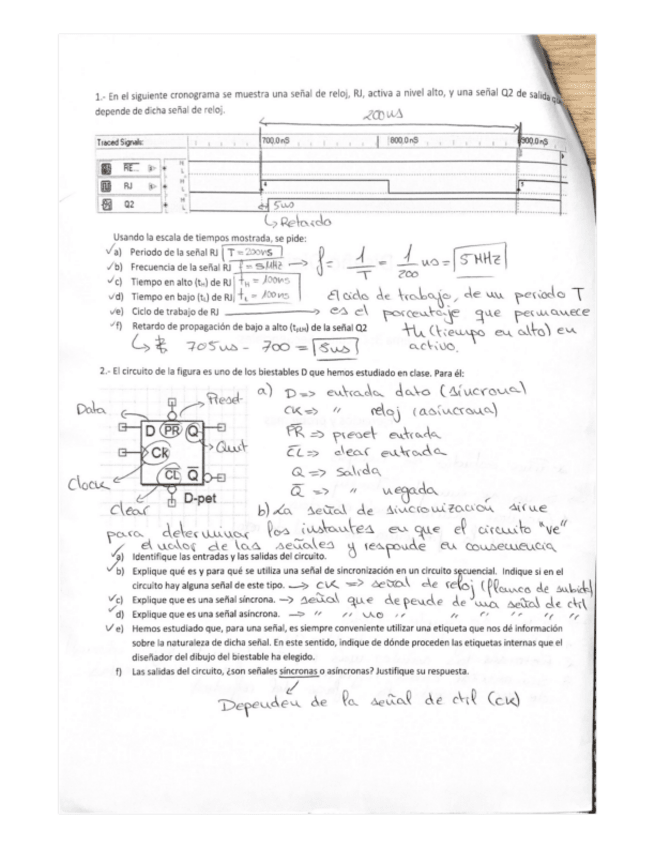 1.- En el siguiente cronograma se muestra una señal de reloj, RJ, activa a nivel alto, y una señal Q2 de salida que
depende de dicha señal de reloj.
200ns
Traced Signals: 700,0nS 800,0nS 900,0nS
RE H L
RJ H L
Q2 H L
5ns
↳ Retardo
Usando la escala de tiempos mostrada, se pide:
✓a) Periodo de la señal RJ T = 200ns
✓b) Frecuencia de la señal RJ f = 5MHz → f = 1/T = 1/200 ns = 5 MHz
✓c) Tiempo en alto (tH) de RJ tH = 100ns
✓d) Tiempo en bajo (tL) de RJ tL = 100ns
✓e) Ciclo de trabajo de RJ → El ciclo de trabajo, de un periodo T
es el porcentaje que permanece
tH (tiempo en alto) en
activo.
✓f) Retardo de propagación de bajo a alto (tPLH) de la señal Q2
↳ 705ns - 700 = 5ns
2.- El circuito de la figura es uno de los biestables D que hemos estudiado en clase. Para él:
Data
Preset
D PR Q
Quit
CK
Clock
CL Q
Clear
D-pet
a) D => entrada dato (síncrona)
CK => " reloj (asíncrona)
PR => preset entrada
CL => clear entrada
Q => salida
Q => " negada
b) La señal de sincronización sirve
para determinar los instantes en que el circuito "ve"
el valor de las señales y responde en consecuencia
✓a) Identifique las entradas y las salidas del circuito.
✓b) Explique qué es y para qué se utiliza una señal de sincronización en un circuito secuencial. Indique si en el
circuito hay alguna señal de este tipo. → CK => señal de reloj (flanco de subida)
✓c) Explique que es una señal síncrona. → señal que depende de una señal de ctrl
✓d) Explique que es una señal asíncrona. → " " no " " " " "
✓e) Hemos estudiado que, para una señal, es siempre conveniente utilizar una etiqueta que nos dé información
sobre la naturaleza de dicha señal. En este sentido, indique de dónde proceden las etiquetas internas que el
diseñador del dibujo del biestable ha elegido.
f) Las salidas del circuito, ¿son señales síncronas o asíncronas? Justifique su respuesta.
Dependen de la señal de ctrl (CK)